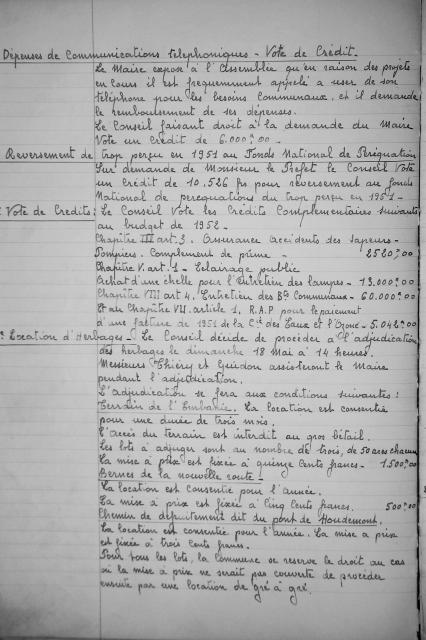 Dépenses de Communications téléphoniques - Vote de Crédit.
Le Maire expose à l'Assemblée qu'en raison des projets
en cours il est fréquemment appelé a user de son
téléphone pour les besoins Communaux, et il demande
le remboursement de ses dépenses.
Le Conseil faisant droit à la demande du Maire
Vote un Crédit de 6.000 ʳ 00 -
Reversement de trop perçu en 1951 au Fonds National de Péréquation
Sur demande de Monsieur le Préfet le Conseil Vote
un crédit de 10.526 frs pour reversement au fonds
National de perequations du trop perçu en 1951 -
Vote de Crédits: Le Conseil Vote les Crédits Complémentaires suivants
au budget de 1952 -
Chapitre III art. 3. Assurance accidents des Sapeurs-
Pompiers. Complement de prime - 2520ʳ00
Chapitre V. art. 1 - Eclairage public
Achat d'une échelle pour l'Entretien des lampes - 13.000ʳ00
Chapitre VIII art 4. Entretien des Bᵗˢ Communaux - 60.000ʳ00
Et au Chapitre VII. article 1, R.A.P pour le paiement
d'une facture de 1951 de la Cⁱᵉ des Eaux et l'Ozone - 5.042ʳ00
Location d'Herbages - Le Conseil décide de procéder à l'adjudication
des herbages le dimanche 18 Mai à 14 heures.
Messieurs Thiéry et Guédon assisteront le Maire
pendant l'adjudication.
L'adjudication se fera aux conditions suivantes:
Terrain de l'. La location est consentie
pour une durée de trois mois.
L'accès du terrain est interdit au gros bétail.
Les lots à adjuger sont au nombre de trois, de 50 ares chacun
La mise à prix est fixée à quinze Cents francs - 1.500ʳ00
Bernes de la nouvelle route -
La location est consentie pour l'année.
La mise à prix est fixée à Cinq Cents francs. 500ʳ00
Chemin de département dit du pont de Houdemont.
La location est consentie pour l'année. La mise à prix
est fixée à trois Cents francs.
Pour tous les lots, la Commune se réserve le droit au cas
où la mise à prix ne serait pas couverte de procéder
ensuite par une location de gré à gré.